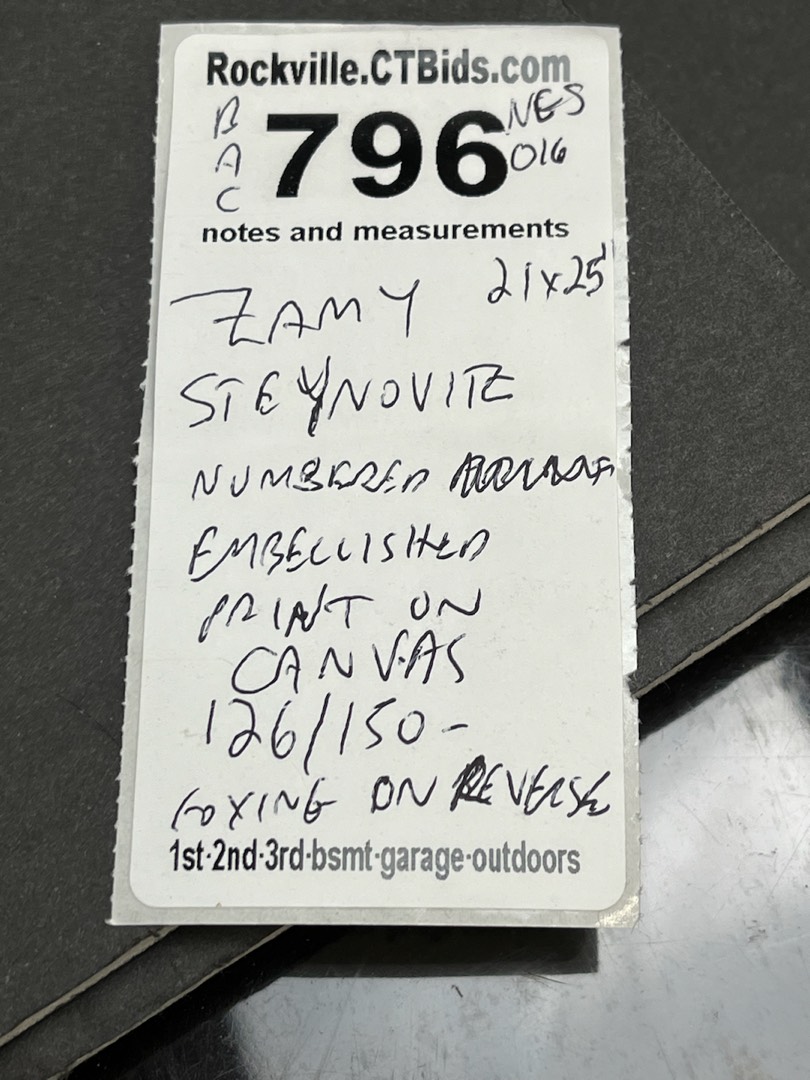 Rockville.CTBids.com
BAC 796 NES
016
notes and measurements
ZAMY 21x25"
STEYNOVITZ
NUMBERED
EMBELLISHED
PRINT ON
CANVAS
126/150-
FOXING ON REVERSE
1st·2nd·3rd·bsmt·garage·outdoors